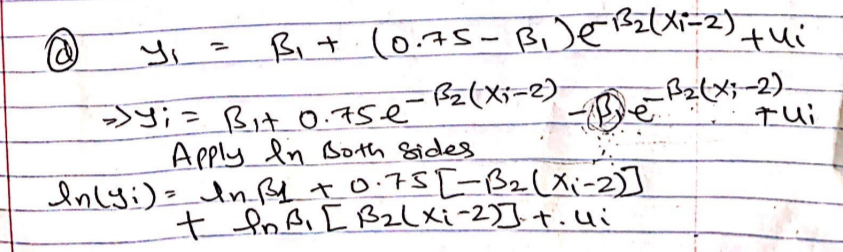 ⓓ yi = β1 + (0.75 - β1)e^-β2(Xi-2) + ui
⇒ yi = β1 + 0.75e^-β2(Xi-2) - β1e^-β2(Xi-2) + ui
Apply ln Both Sides
ln(yi) = ln β1 + 0.75[-β2(Xi-2)]
+ ln β1[β2(Xi-2)] + ui